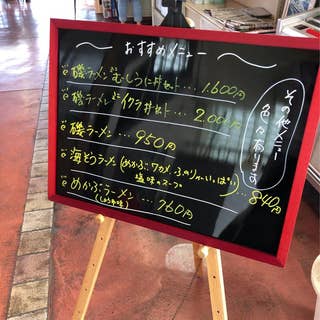 おすすめメニュー
磯ラーメン むしうに丼セット…1.600円
磯ラーメン イクラ丼セット…2.000円
磯ラーメン…950円
海そうラーメン(めかぶ、ワカメ、ふのりがいっぱい)…840円
塩味のスープ
めかぶラーメン…760円
(しょうゆ味)
その他メニュー
色々あります